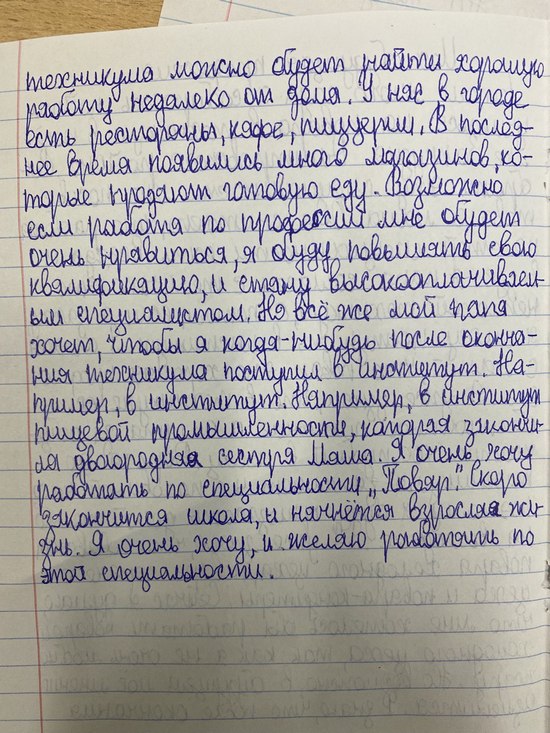 техникума можно будет найти хорошую
работу недалеко от дома. У нас в городе
есть рестораны, кафе, пиццерии. В послед-
нее время появились много магазинов, ко-
торые продают готовую еду. Возможно
если работа по профессии мне будет
очень нравиться, я буду повышать свою
квалификацию, и стану высокооплачиваем-
ым специалистом. Но всё же мой папа
хочет, чтобы я когда-нибудь после оконча-
ния техникума поступил в институт. На-
пример, в институт. Например, в институт
пищевой промышленности, которая закончи-
ла двоюродная сестра Маша. Я очень хочу
работать по специальности „Повар". Скоро
закончится школа, и начнётся взрослая жи-
знь. Я очень хочу, и желаю работать по
этой специальности.